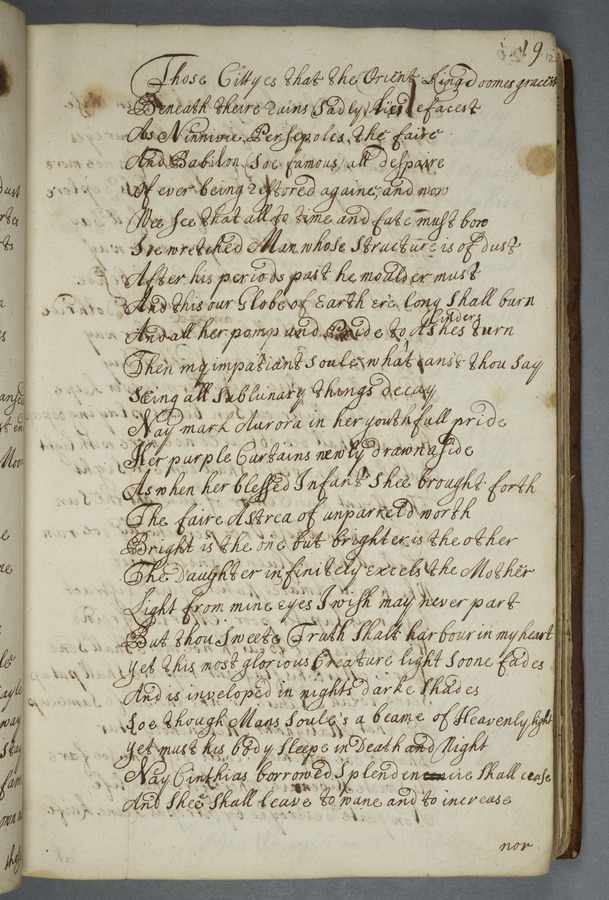 19
Those Cittyes that the Orient Kingdoomes gracest
Beneath theire ruins Sadly lies defacest
As Ninnivie, Persepoles, the faire
And Babilon Soe famous all despaire
Of ever being restored againe, and now
Wee See that all to time and fate must bow
Soe wretched Man whose Structure is of dust
After his periods past he moulder must
And this our Globe of Earth ere long Shall burn
And all her pomp and Pride to Ashes Cinders turn
Then my impatiant Soule what canst thou Say
Seing all Sublunary things decay
Nay mark Aurora in her youthfull pride
Her purple Curtains newly drawn aside
As when her blessed Infant Shee brought forth
The faire Astrea of unparreld worth
Bright is the one but brighter is the other
The Daughter infinitely excels the Mother
Light from mine eyes I wish may never part
But thou Sweete Truth Shalt harbour in my heart
Yet this most glorious Creature light Soone fades
And is inveloped in nights darke Shades
Soe though Mans Soule's a beame of Heavenly light
Yet must his body Sleepe in Death and Night
Nay Cinthias borrowed Splendencie Shall cease
And Shee Shall leave to wane and to increase
nor